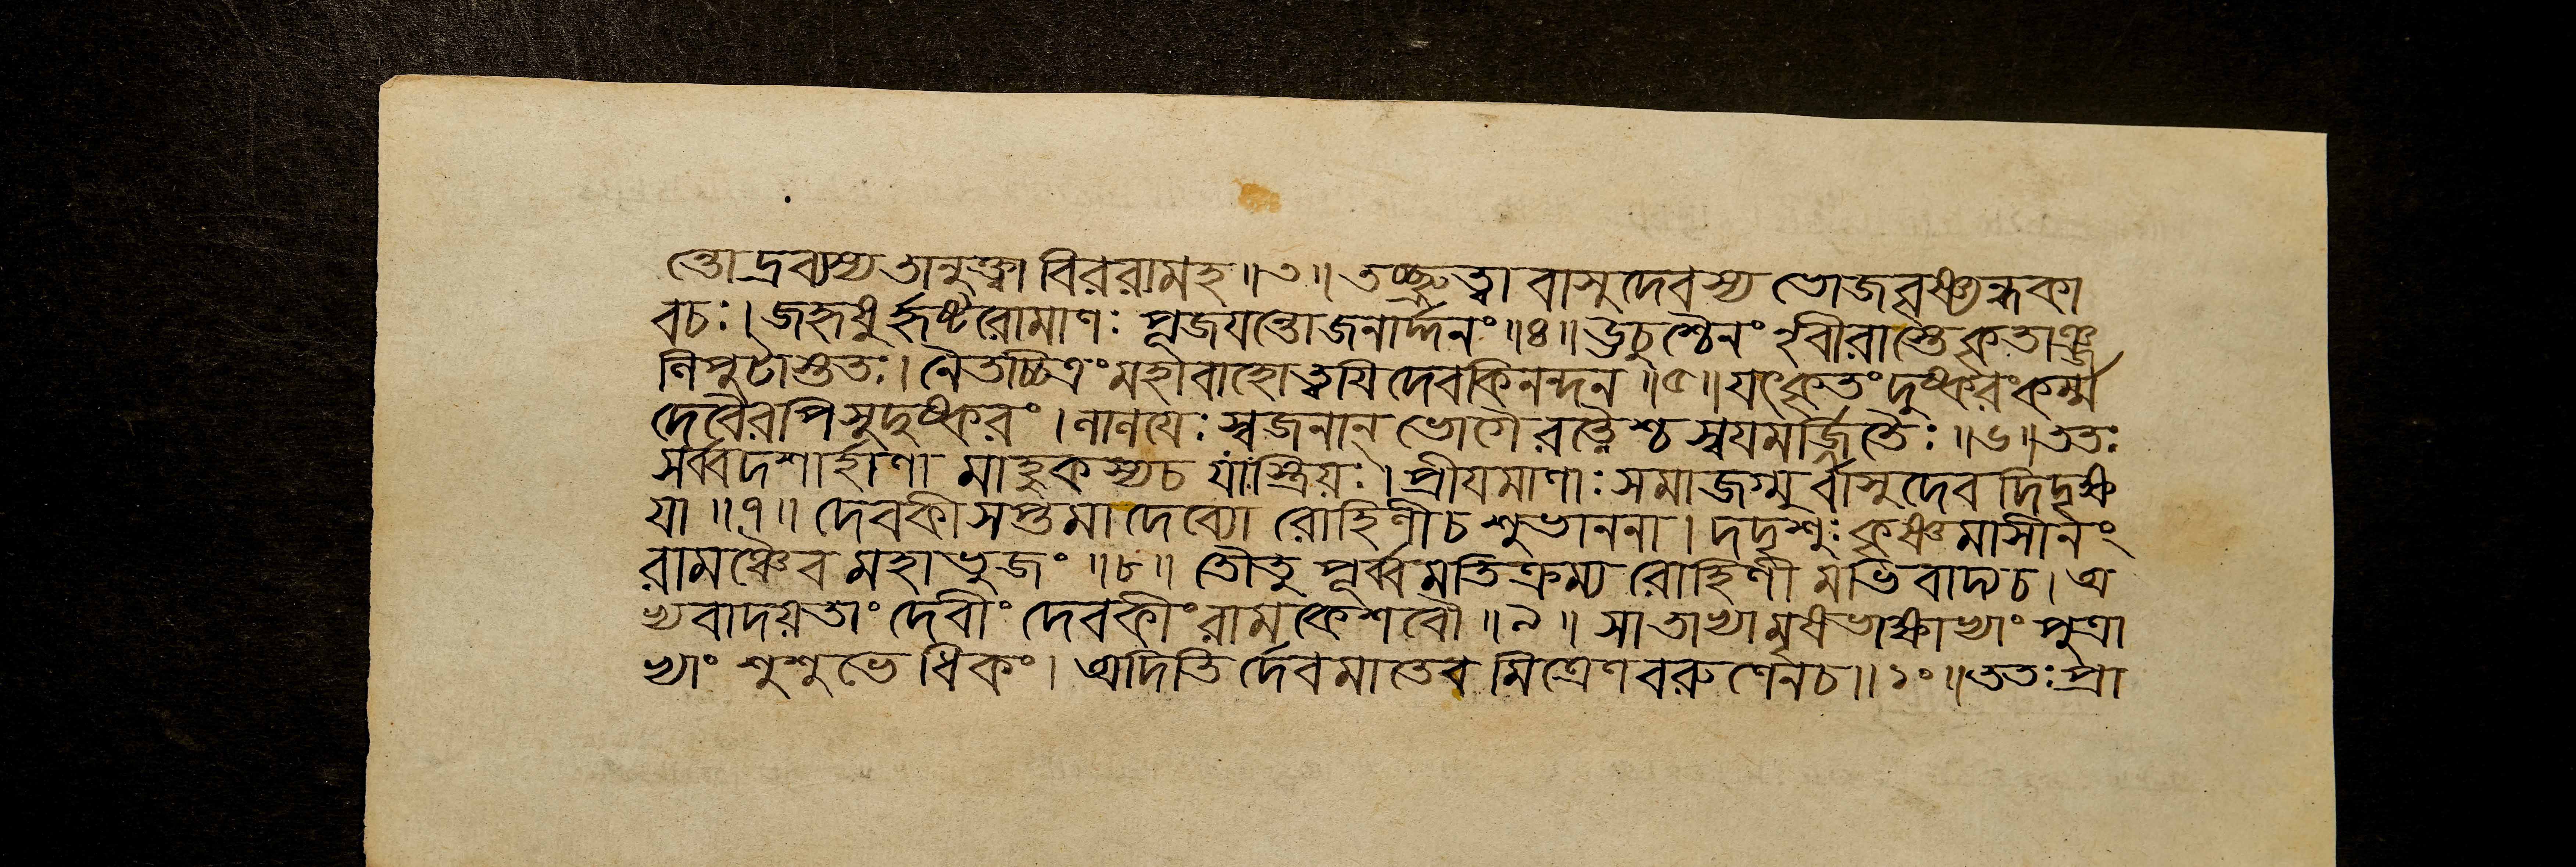 ন্তো দ্রব্যস্য তানুক্ত্বা বিররামহ ॥৩॥ তচ্ছ্রুত্বা বাসুদেবস্য ভোজবৃষ্ণ্যন্ধকা
বচঃ। জহৃষুর্হৃষ্টরোমাণঃ পূজযন্তো জনার্দ্দনং ॥৪॥ ঊচুশ্চৈনং নৃবীরাস্তে কৃতাঞ্জ
লিপুটাস্ততঃ। নৈতচ্চিত্রং মহাবাহো ত্বযি দেবকিনন্দন ॥৫॥ যৎকৃতং দুষ্করং কর্ম্ম
দেবৈরপি সুদুষ্করং। লালযেঃ স্বজনান্ ভোগৈ রত্নৈশ্চ স্বযমর্জিতৈঃ ॥৬॥ ততঃ
সর্ব্বদশার্হাণা মাহুকস্য চ যাঃ স্ত্রিয়ঃ। প্রীযমাণাঃ সমাজগ্মুর্বাসুদেব দিদৃক্ষ
যা ॥৭॥ দেবকীসপ্তমা দেব্যো রোহিণী চ শুভাননা। দদৃশুঃ কৃষ্ণমাসীনং
রামঞ্চৈব মহাভুজং ॥৮॥ তৌ তু পূর্ব্বমতিক্রম্য রোহিণী মভিবাদ্য চ। অ
ভ্যবাদয়তাং দেবীং দেবকীং রামকেশবৌ ॥৯॥ সা তাভ্যামৃষভাক্ষাভ্যাং পুত্রা
ভ্যাং শুশুভে ধিকং। অদিতি র্দেবমাতেব মিত্রেণ বরুণেন চ॥১০॥ ততঃ প্রা